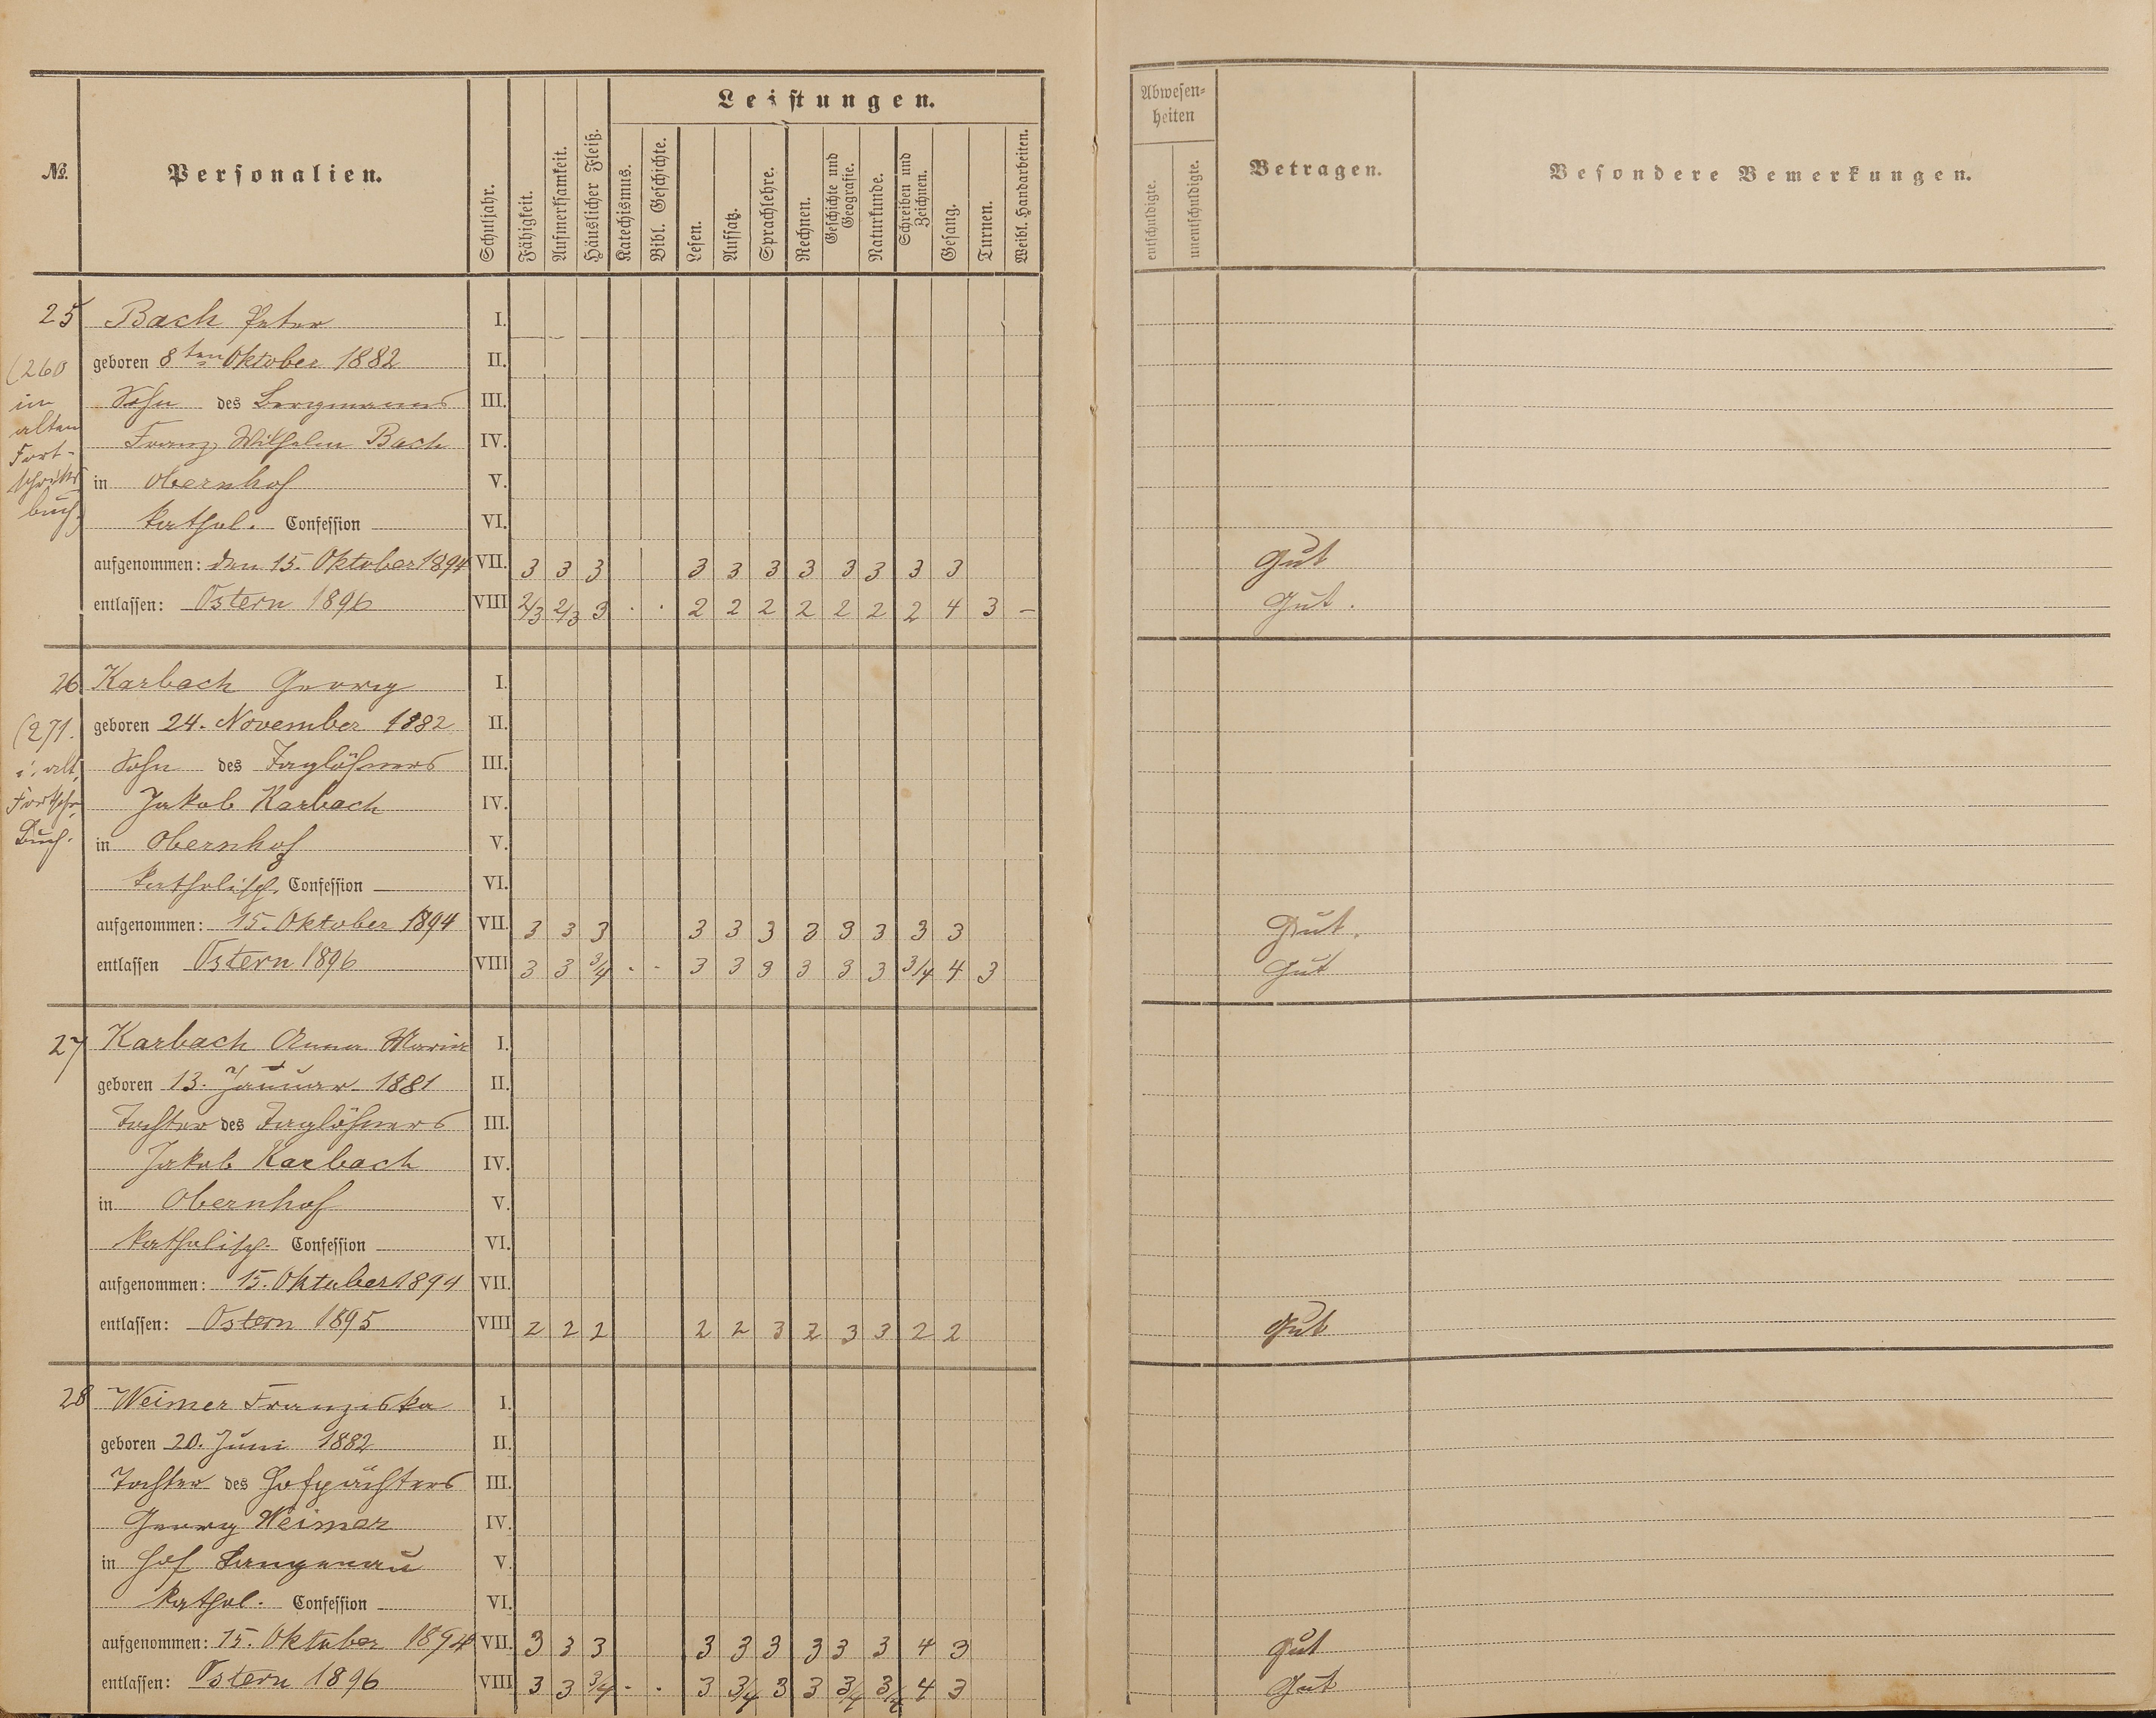 Leistungen.
№.
Personalien.
Schuljahr.
Fähigkeit.
Aufmerksamkeit.
Häuslicher Fleiß.
Katechismus.
Bibl. Geschichte.
Lesen.
Aufsatz.
Sprachlehre.
Rechnen.
Geschichte und Geografie.
Naturkunde.
Schreiben und Zeichnen.
Gesang.
Turnen.
Weibl. Handarbeiten.
Abwesen-
heiten
entschuldigte.
unentschuldigte.
Betragen.
Besondere Bemerkungen.
25 Bach Peter I.
(260 geboren 8ten Oktober 1882 II.
im Sohn des Bergmanns III.
alten Franz Wilhelm Bach IV.
Fort-
schritts in Obernhof V.
buch) kathol. Confession VI.
aufgenommen: den 15. Oktober 1894 VII. 3 3 3 3 3 3 3 3 3 3 3 Gut
entlassen: Ostern 1896 VIII 2/3 2/3 3 . . 2 2 2 2 2 2 2 4 3 – Gut.
26 Karbach Georg I.
(271. geboren 24. November 1882 II.
i. alt. Sohn des Taglöhners III.
Fortschr. Jakob Karbach IV.
Buch. in Obernhof V.
katholisch. Confession VI.
aufgenommen: 15. Oktober 1894 VII. 3 3 3 3 3 3 3 3 3 3 3 Gut.
entlassen Ostern 1896 VIII 3 3 3/4 . . 3 3 3 3 3 3 3/4 4 3 Gut
27 Karbach Anna Maria I.
geboren 13. Januar 1881 II.
Tochter des Taglöhners III.
Jakob Karbach IV.
in Obernhof V.
katholisch. Confession VI.
aufgenommen: 15. Oktober 1894 VII.
entlassen: Ostern 1895 VIII 2 2 2 2 2 3 2 3 3 2 2 Gut
28 Weimer Franziska I.
geboren 20. Juni 1882 II.
Tochter des Hofpächters III.
Georg Weimer IV.
in Hof Langenau V.
kathol. Confession VI.
aufgenommen: 15. Oktober 1894 VII. 3 3 3 3 3 3 3 3 3 4 3 Gut
entlassen: Ostern 1896 VIII 3 3 3/4 . . 3 3/4 3 3 3/4 3/4 4 3 Gut